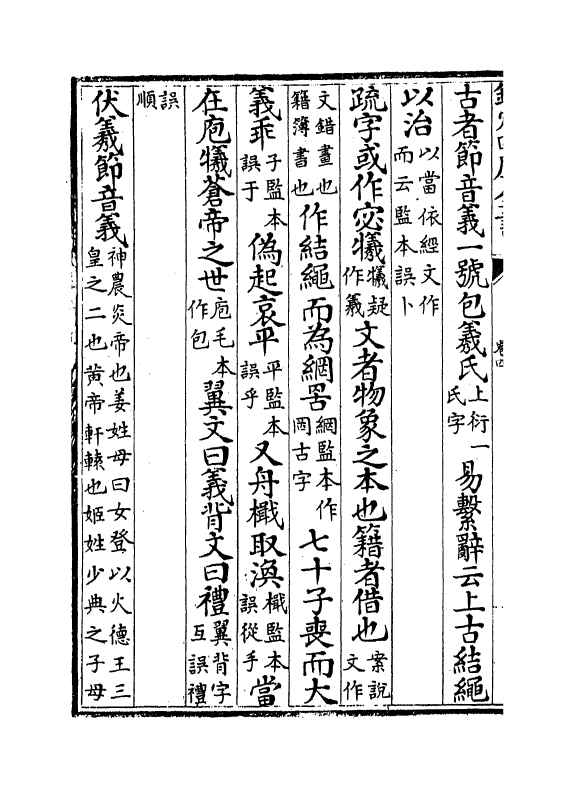 古者節音義一號包羲氏上衍一氏字易繫辭云上古結繩
以治以當依經文作而云監本誤卜
疏字或作宓犧犧疑作羲文者物象之本也籍者借也案説文作
文錯畫也籍簿書也作結繩而為網罟網監本作罔古字七十子喪而大
義乖子監本誤于偽起哀平平監本誤乎又舟檝取渙檝監本誤從手當
在庖犧蒼帝之世庖毛本作包翼文曰義背文曰禮翼背字互誤禮
誤順
伏羲節音義神農炎帝也姜姓母曰女登以火德王三皇之二也黄帝軒轅也姬姓少典之子母